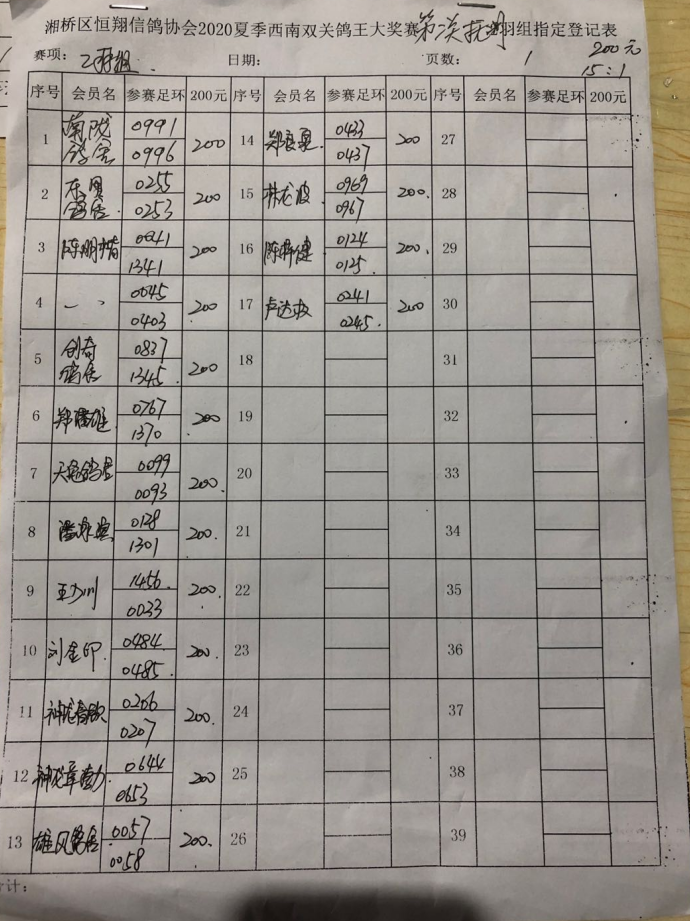 湘桥区恒翔信鸽协会2020夏季西南双关鸽王大奖赛 羽组指定登记表
赛项: 日期: 页数: 1 200元
15:1
序号 会员名 参赛足环 200元 序号 会员名 参赛足环 200元 序号 会员名 参赛足环 200元
1 南陇鸽舍 0991 0996 200 14 0433 0437 200 27
2 鸽舍 0255 0253 200 15 林龙波 0969 0967 200 28
3 0841 1341 200 16 0124 0125 200 29
4 0045 0403 200 17 卢达 0241 0245 200 30
5 创奇鸽舍 0837 1345 200 18 31
6 郑 雄 0767 1370 200 19 32
7 0099 0093 200 20 33
8 0128 1301 200 21 34
9 川 1456 0033 200 22 35
10 刘金印 0484 0485 200 23 36
11 神龙 0206 0207 200 24 37
12 神龙 0644 0653 200 25 38
13 雄风鸽舍 0057 0058 200 26 39
计: